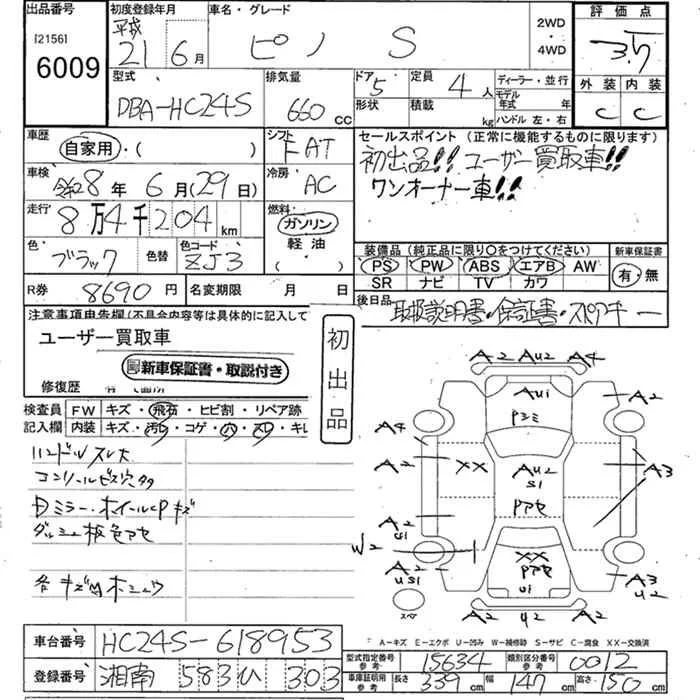 出品番号
[2156]
6009
初度登録年月
平成
21 6月
車名・グレード
ピノ S
2WD
・
4WD
評価点
3.5
外装 内装
C C
型式
DBA-HC24S
排気量
660 CC
ドア 5
形状
定員 4 人
積載 kg
ディーラー・並行
モデル年式 年
ハンドル 左・右
車歴
自家用・( )
シフト
FAT
セールスポイント (正常に機能するものに限ります)
初出品!! ユーザー買取車!!
ワンオーナー車!!
車検
令和8年 6月(29日)
冷房
AC
走行
8万4千204 km
燃料
ガソリン
軽油
( )
色
ブラック
色替
色コード
ZJ3
装備品 (純正品に限り○をつけてください)
PS PW ABS エアB AW
SR ナビ TV カワ
新車保証書
有・無
R券 8690円
名変期限 月 日
後日品
取扱説明書・保証書・スペアキー
注意事項申告欄(不具合内容等は具体的に記入して
ユーザー買取車
新車保証書・取説付き
修復歴
初出品
検査員 FW キズ・飛石・ヒビ割・リペア跡
記入欄 内装 キズ・汚レ・コゲ・穴・スレ・キレ
ハンドルスレ大
コンソールビス穴タタ
Dミラー・ホイールCPキズ
ダッシュ板色アセ
各キズ凹ホシュウ
A2 AU2 A4
AU1
Pシミ
A2
A4
A2 XX
AU2
S1
Pアセ
A3
A2
U1
W2
A2
US1
XX
Pアセ
U1
A3
U2
A2 U2 A2
スペア
A-キズ E-エクボ U-凹み W-補修跡 S-サビ C-腐食 XX-交換済
車台番号 HC24S-618953
登録番号 湘南 583 ひ 303
型式指定番号 参考 15634
類別区分番号 参考 0012
車庫証明用 参考 長さ 339 cm 幅 147 cm 高さ 150 cm